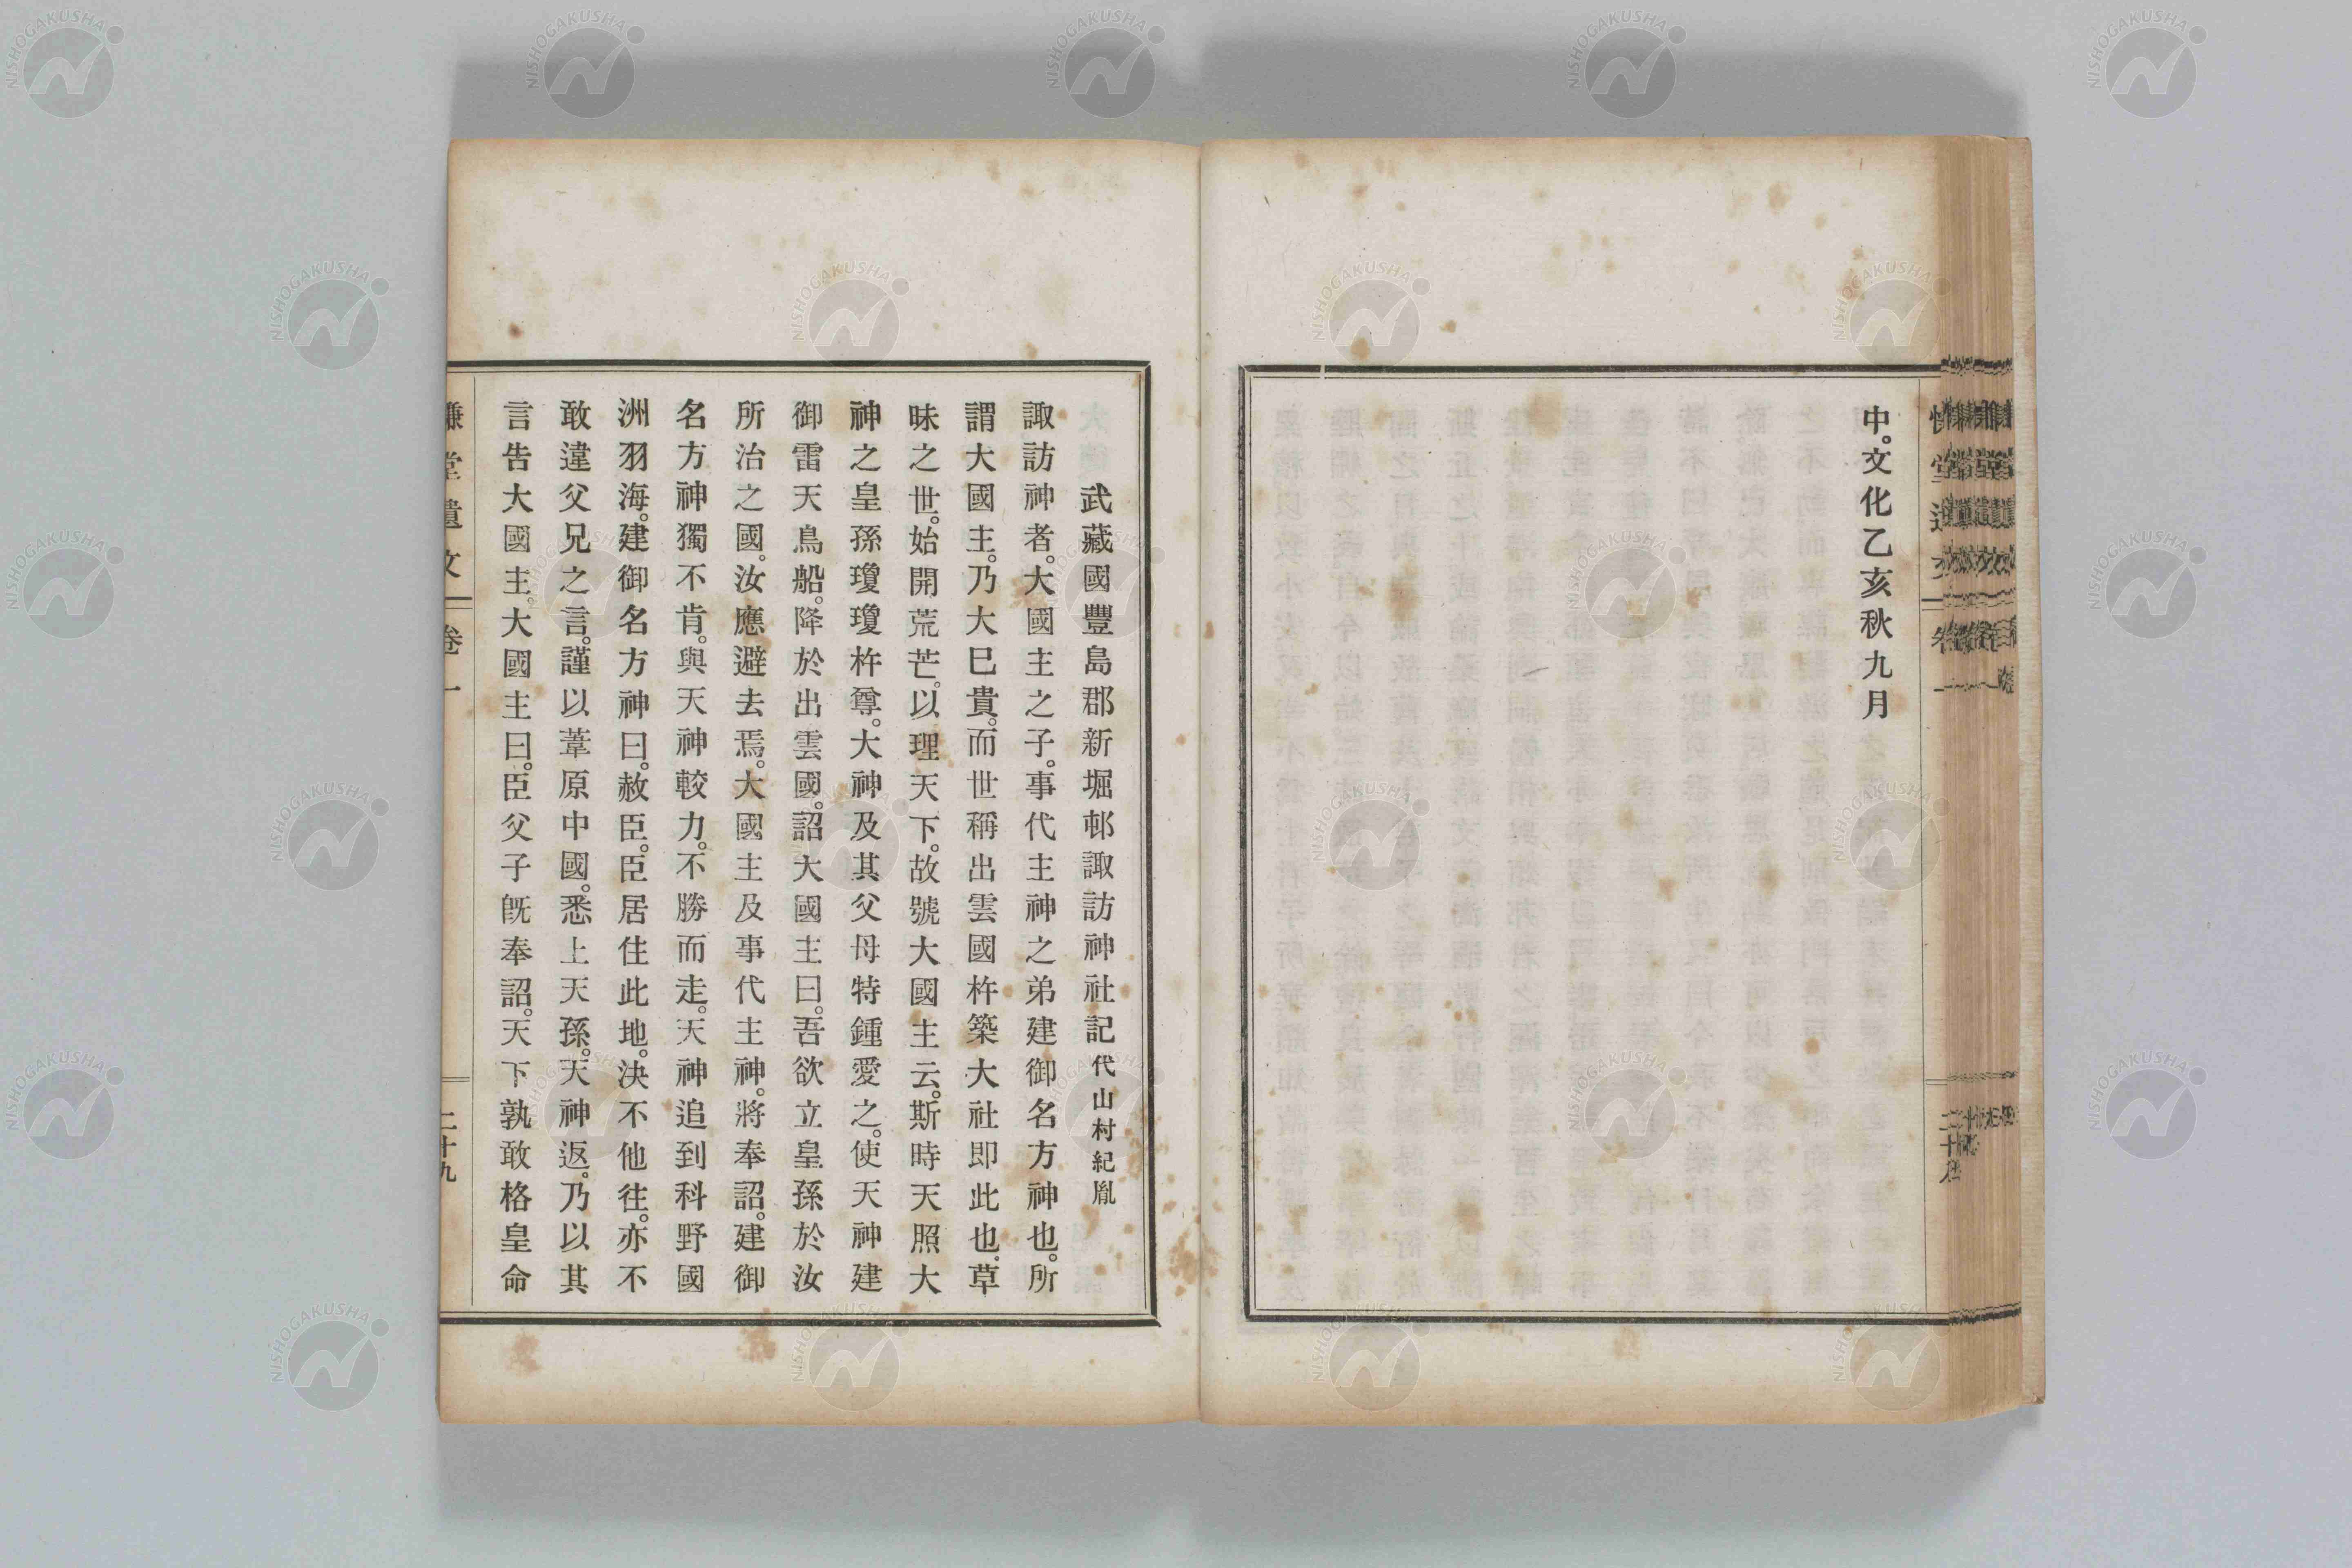 中。文化乙亥秋九月
武藏國豐島郡新堀邨諏訪神社記代山村紀胤
諏訪神者。大國主之子。事代主神之弟建御名方神也。所
謂大國主。乃大巳貴。而世稱出雲國杵築大社即此也。草
昧之世。始開荒芒。以理天下。故號大國主云。斯時天照大
神之皇孫瓊瓊杵尊。大神及其父母特鍾愛之。使天神建
御雷天鳥船。降於出雲國。詔大國主曰。吾欲立皇孫於汝
所治之國。汝應避去焉。大國主及事代主神。將奉詔。建御
名方神獨不肯。與天神較力。不勝而走。天神追到科野國
洲羽海。建御名方神曰。赦臣。臣居住此地。決不他往。亦不
敢違父兄之言。謹以葦原中國。悉上天孫。天神返。乃以其
言告大國主。大國主曰。臣父子既奉詔。天下孰敢格皇命
慊堂遺文 卷一 二十九
NISHOGAKUSHA